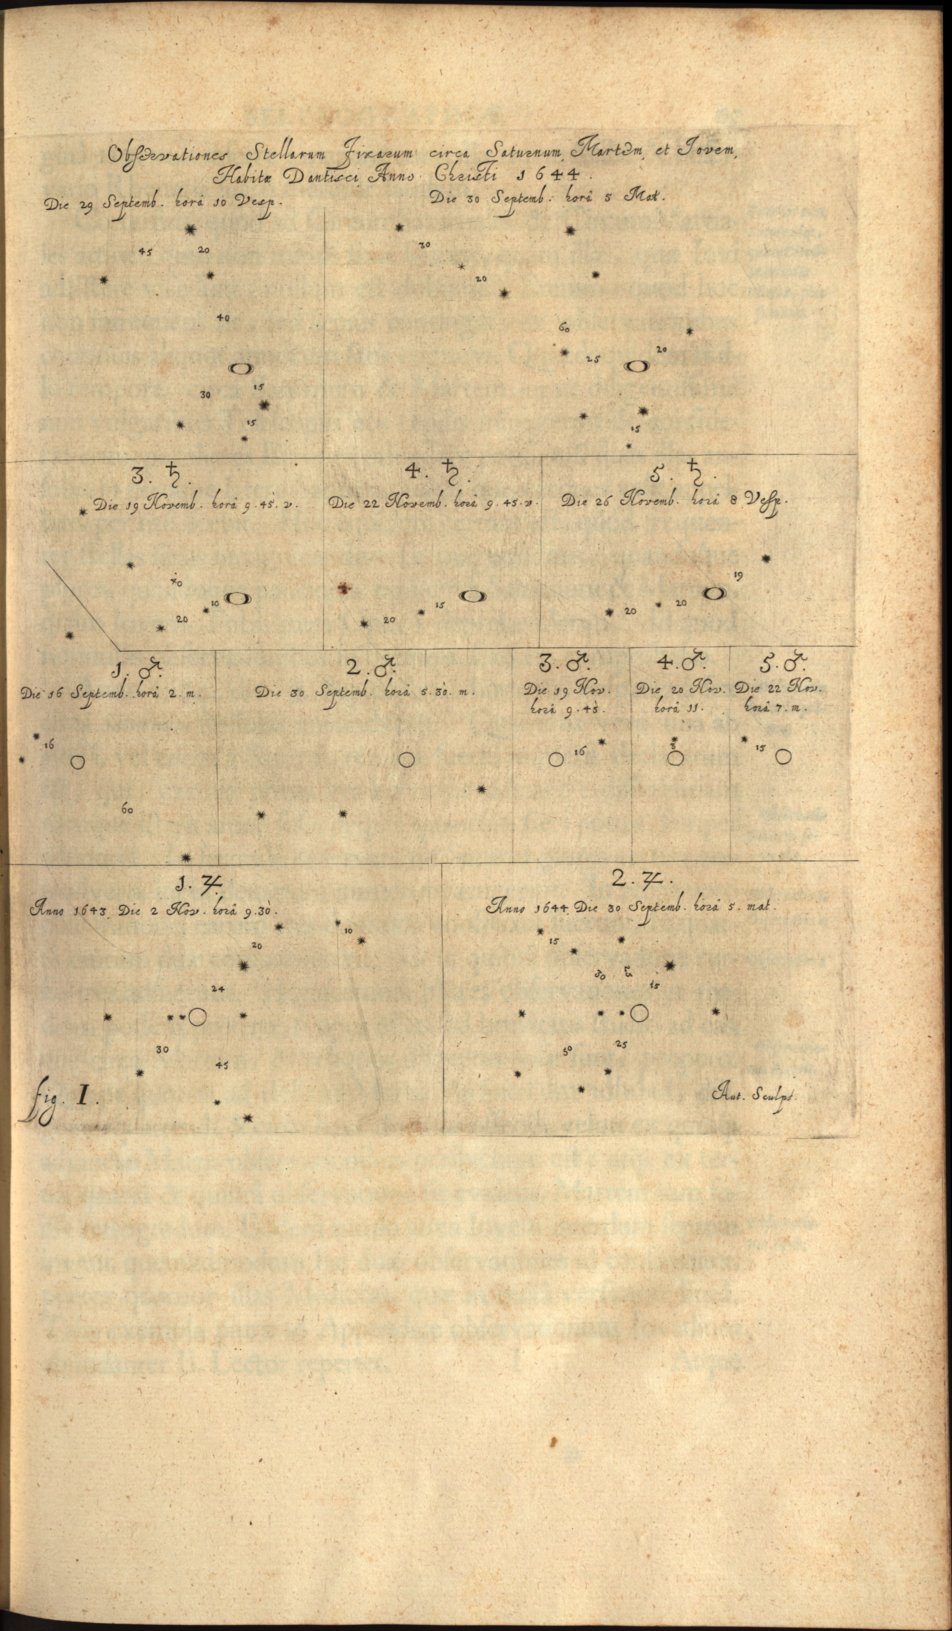 Observationes Stellarum Fixarum circa Saturnum, Martem, et Jovem,
Habitæ Dantisci, Anno Christi 1644.
Die 29 Septemb. horâ 10 Vesp.
45 20
40
15
30
15
Die 30 Septemb. horâ 5 Mat.
30
20
60
25 20
15
3. ♄.
Die 19 Novemb. horâ 9.45. v.
40
10
20
4. ♄.
Die 22 Novemb. horâ 9.45. v.
15
20
5. ♄.
Die 26 Novemb. horâ 8 Vesp.
19
20 20
1. ♂.
Die 16 Septemb. horâ 2. m.
16
60
2. ♂.
Die 30 Septemb. horâ 5.30. m.
3. ♂.
Die 19 Nov.
horâ 9.45.
16
4. ♂.
Die 20 Nov.
horâ 11.
5. ♂.
Die 22 Nov.
horâ 7. m.
15
1. ♃.
Anno 1643, Die 2 Nov. horâ 9.30.
10
20
24
30
45
2. ♃.
Anno 1644, Die 30 Septemb. horâ 5. mat.
15
30
15
50 25
fig. I.
Aut. Sculps.